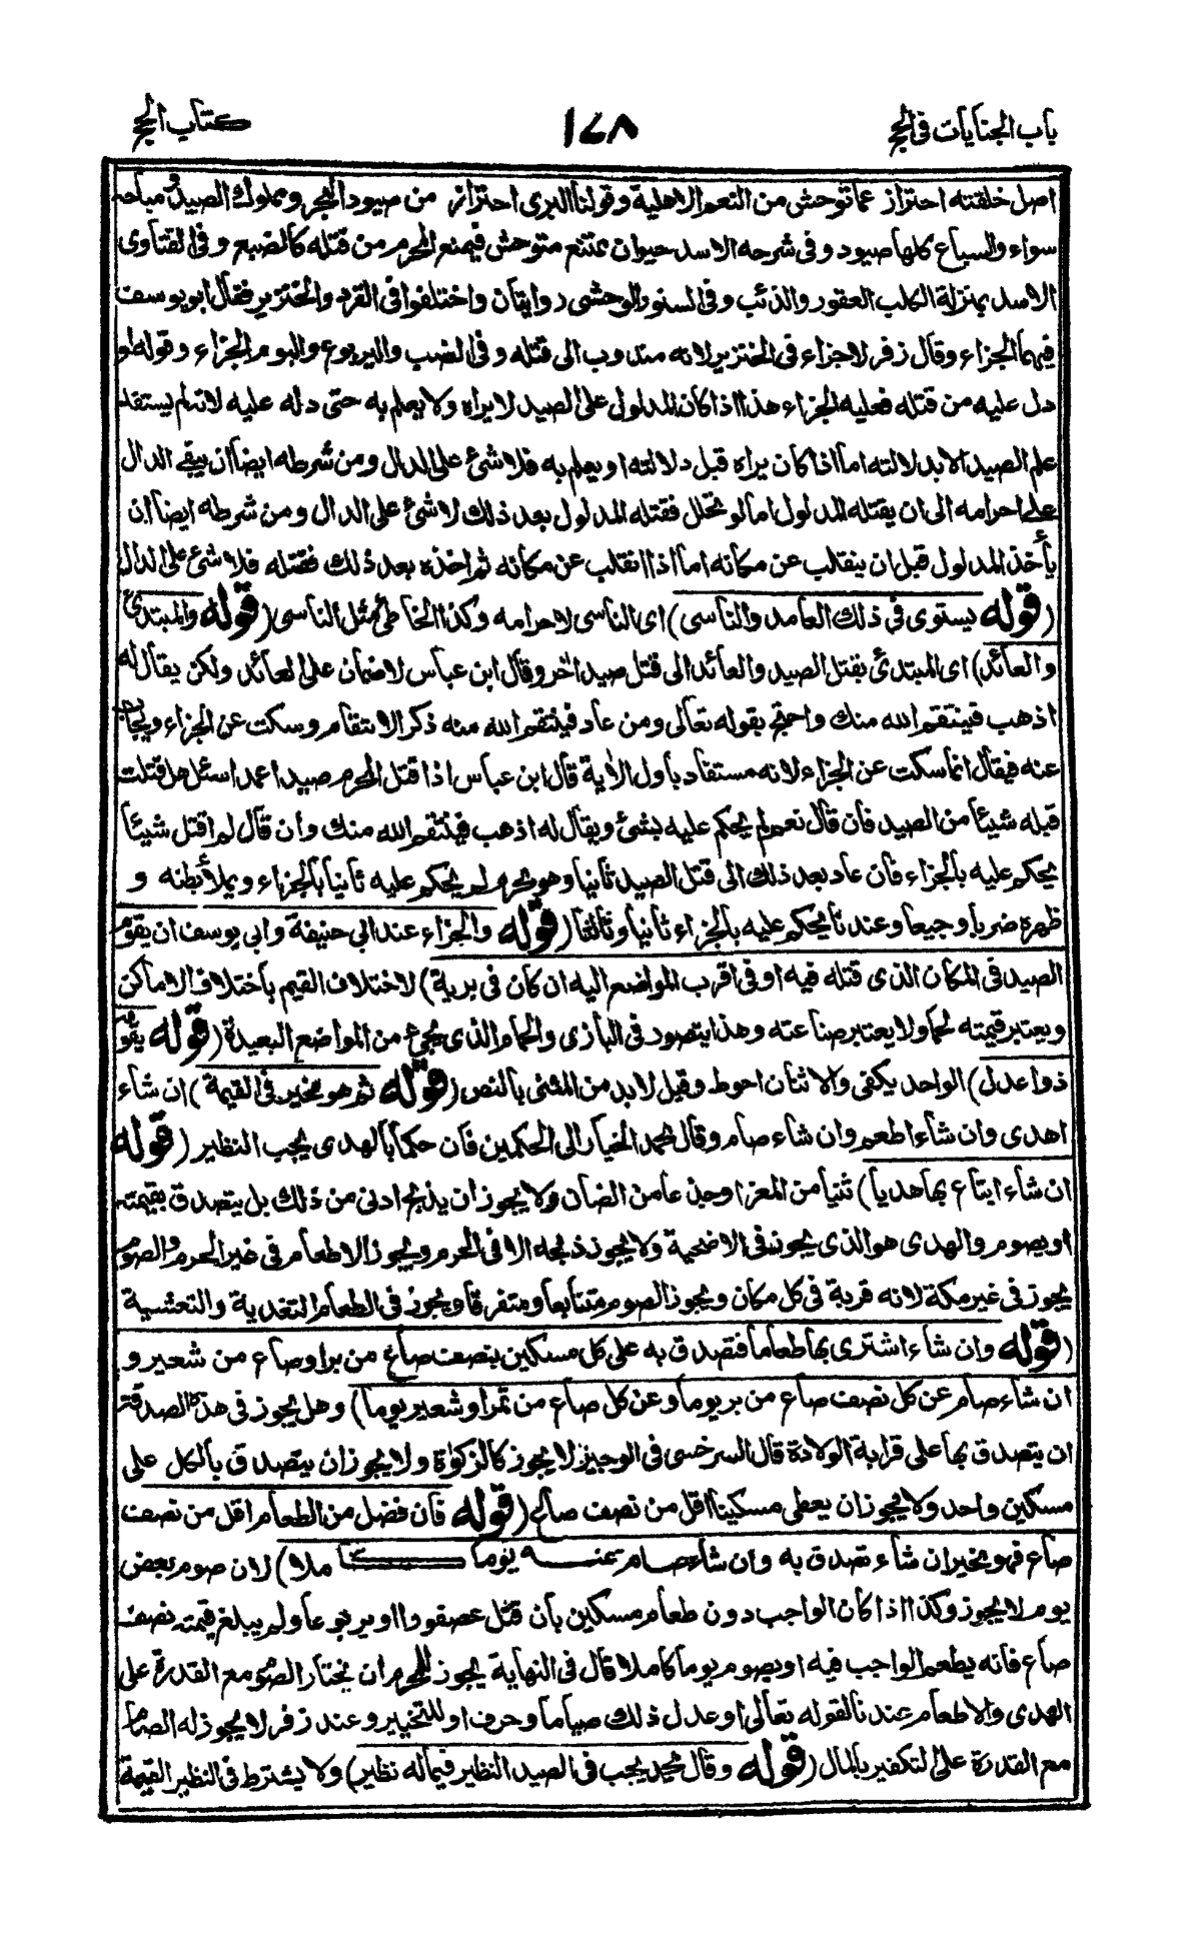 باب الجنايات فى الحج
١٧٨
كتاب الحج
اصل خلقته احتراز عما توحش من النعم الاهلية وقولنا البرى احتراز من صيود البحر ومملوك الصيد ومباحه
سواء والسباع كلها صيود وفى شرحه الاسد حيوان ممتنع متوحش فيمنع المحرم من قتله كالضبع وفى الفتاوى
الاسد بمنزلة الكلب العقور والذئب وفى السنور الوحشى روايتان واختلفوا فى القرد والخنزير فقال ابو يوسف
فيهما الجزاء وقال زفر لا جزاء فى الخنزير لانه مندوب الى قتله وفى الضب واليربوع والبوم الجزاء وقوله او
دل عليه من قتله فعليه الجزاء هذا اذا كان المدلول على الصيد لا يراه ولا يعلم به حتى دله عليه لانه لم يستفد
علم الصيد الا بدلالته اما اذا كان يراه قبل دلالته او يعلم به فلا شئ على الدال ومن شرطه ايضا ان يبقى الدال
على احرامه الى ان يقتله المدلول اما لو تحلل فقتله المدلول بعد ذلك لا شئ على الدال ومن شرطه ايضا ان
يأخذ المدلول قبل ان ينقلب عن مكانه اما اذا انقلب عن مكانه ثم اخذه بعد ذلك فقتله فلا شئ على الدال
(قوله يستوى فى ذلك العامد والناسى) اى الناسى لاحرامه وكذا الخاطئ مثل الناسى (قوله والمبتدئ
والعائد) اى المبتدئ بقتل الصيد والعائد الى قتل صيد اخر وقال ابن عباس لا ضمان على العائد ولكن يقال له
اذهب فينتقم الله منك واحتج بقوله تعالى ومن عاد فينتقم الله منه ذكر الانتقام وسكت عن الجزاء ويجاب
عنه فيقال انما سكت عن الجزاء لانه مستفاد بأول الاية قال ابن عباس اذا قتل المحرم صيدا عمدا اسئل هل قتلت
قبله شيئا من الصيد فان قال نعم لم يحكم عليه بشئ ويقال له اذهب فينتقم الله منك وان قال لم اقتل شيئا
يحكم عليه بالجزاء فان عاد بعد ذلك الى قتل الصيد ثانيا وهو محرم لم يحكم عليه ثانيا بالجزاء ويملأ بطنه و
ظهره ضربا وجيعا وعندنا يحكم عليه بالجزاء ثانيا وثالثا (قوله والجزاء عند ابى حنيفة وابى يوسف ان يقوم
الصيد فى المكان الذى قتله فيه او فى اقرب المواضع اليه ان كان فى برية) لاختلاف القيم باختلاف الاماكن
ويعتبر قيمته لحما ولا يعتبر صناعته وهذا يتصور فى البازى والحمام الذى يجئ من المواضع البعيدة (قوله يقومه
ذوا عدل) الواحد يكفى والاثنان احوط وقيل لا بد من المثنى بالنص (قوله ثم هو مخير فى القيمة) ان شاء
اهدى وان شاء اطعم وان شاء صام وقال محمد الخيار الى الحكمين فان حكما بالهدى يجب النظير (قوله
ان شاء ابتاع بها هديا) ثنيا من المعز او جذعا من الضان ولا يجوز ان يذبح ادنى من ذلك بل يتصدق بقيمته
او يصوم والهدى هو الذى يجوز فى الاضحية ولا يجوز ذبحه الا فى الحرم ويجوز الاطعام فى غير الحرم والصوم
يجوز فى غير مكة لانه قربة فى كل مكان ويجوز الصوم متتابعا ومتفرقا ويجوز فى الطعام التغدية والتعشية
(قوله وان شاء اشترى بها طعاما فتصدق به على كل مسكين بنصف صاع من بر او صاع من شعير و
ان شاء صام عن كل نصف صاع من بر يوما وعن كل صاع من تمر او شعير يوما) وهل يجوز فى هذه الصدقة
ان يتصدق بها على قرابة الولادة قال السرخسى فى الوجيز لا يجوز كالزكوة ولا يجوز ان يتصدق بالكل على
مسكين واحد ولا يجوز ان يعطى مسكينا اقل من نصف صاع (قوله فان فضل من الطعام اقل من نصف
صاع فهو مخير ان شاء تصدق به وان شاء صام عنه يوما كاملا) لان صوم بعض
يوم لا يجوز وكذا اذا كان الواجب دون طعام مسكين بأن قتل عصفورا او يربوعا ولم يبلغ قيمته نصف
صاع فانه يطعم الواجب فيه او يصوم يوما كاملا قال فى النهاية يجوز للمحرم ان يختار الصوم مع القدرة على
الهدى والاطعام عندنا لقوله تعالى او عدل ذلك صياما وحرف او للتخيير وعند زفر لا يجوز له الصيام
مع القدرة على التكفير بالمال (قوله وقال محمد يجب فى الصيد النظير فيما له نظير) ولا يشترط فى النظير القيمة